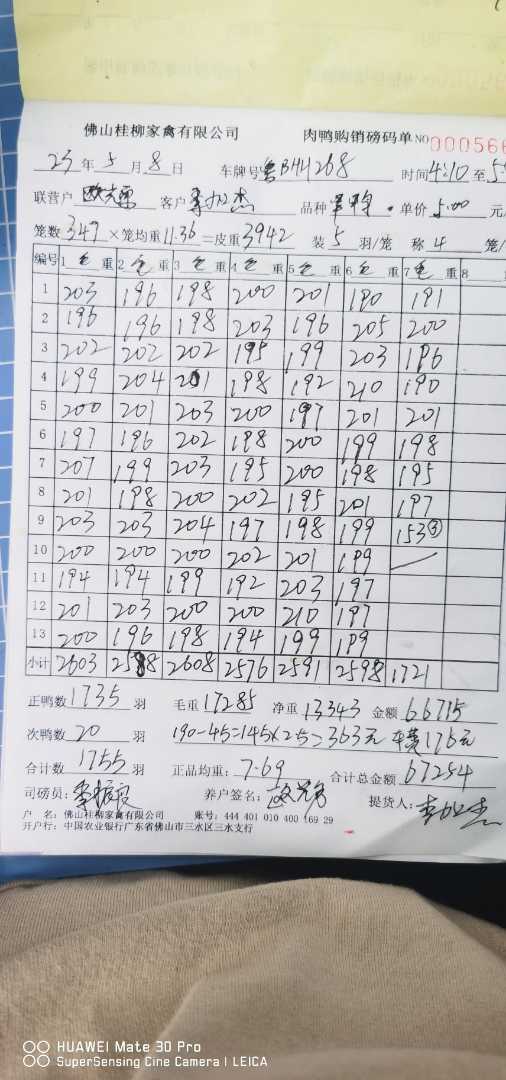 佛山桂柳家禽有限公司 肉鸭购销磅码单 NO 000566
23 年 5 月 8 日 车牌号 鲁BHH268 时间 4:10 至
联营户 客户 李 杰 品种 单价 5.00 元/
笼数 347 ×笼均重 11.36 =皮重 3942 装 5 羽/笼 称 4 笼/
编号 1 毛 重 2 毛 重 3 毛 重 4 毛 重 5 毛 重 6 毛 重 7 毛 重 8 重
1 203 196 198 200 201 190 191
2 196 196 198 203 196 205 200
3 202 202 202 195 199 203 196
4 199 204 201 198 192 210 190
5 200 201 203 200 197 201 201
6 197 196 202 198 200 199 198
7 207 199 203 195 200 198 195
8 201 198 200 202 195 201 197
9 203 203 204 197 198 199 153③
10 200 200 200 202 201 199
11 194 194 199 192 203 197
12 201 203 200 200 210 197
13 200 196 198 194 199 199
小计 2603 2588 2608 2576 2591 2598 1721
正鸭数 1735 羽 毛重 17285 净重 13343 金额 66715
次鸭数 20 羽 190-45=145×2.5=363元 车费176元
合计数 1755 羽 正品均重: 7.69 合计总金额 67254
司磅员: 养户签名: 提货人:
户 名: 佛山桂柳家禽有限公司 账号: 444 401 010 400 169 29
开户行: 中国农业银行广东省佛山市三水区三水支行
HUAWEI Mate 30 Pro
SuperSensing Cine Camera | LEICA